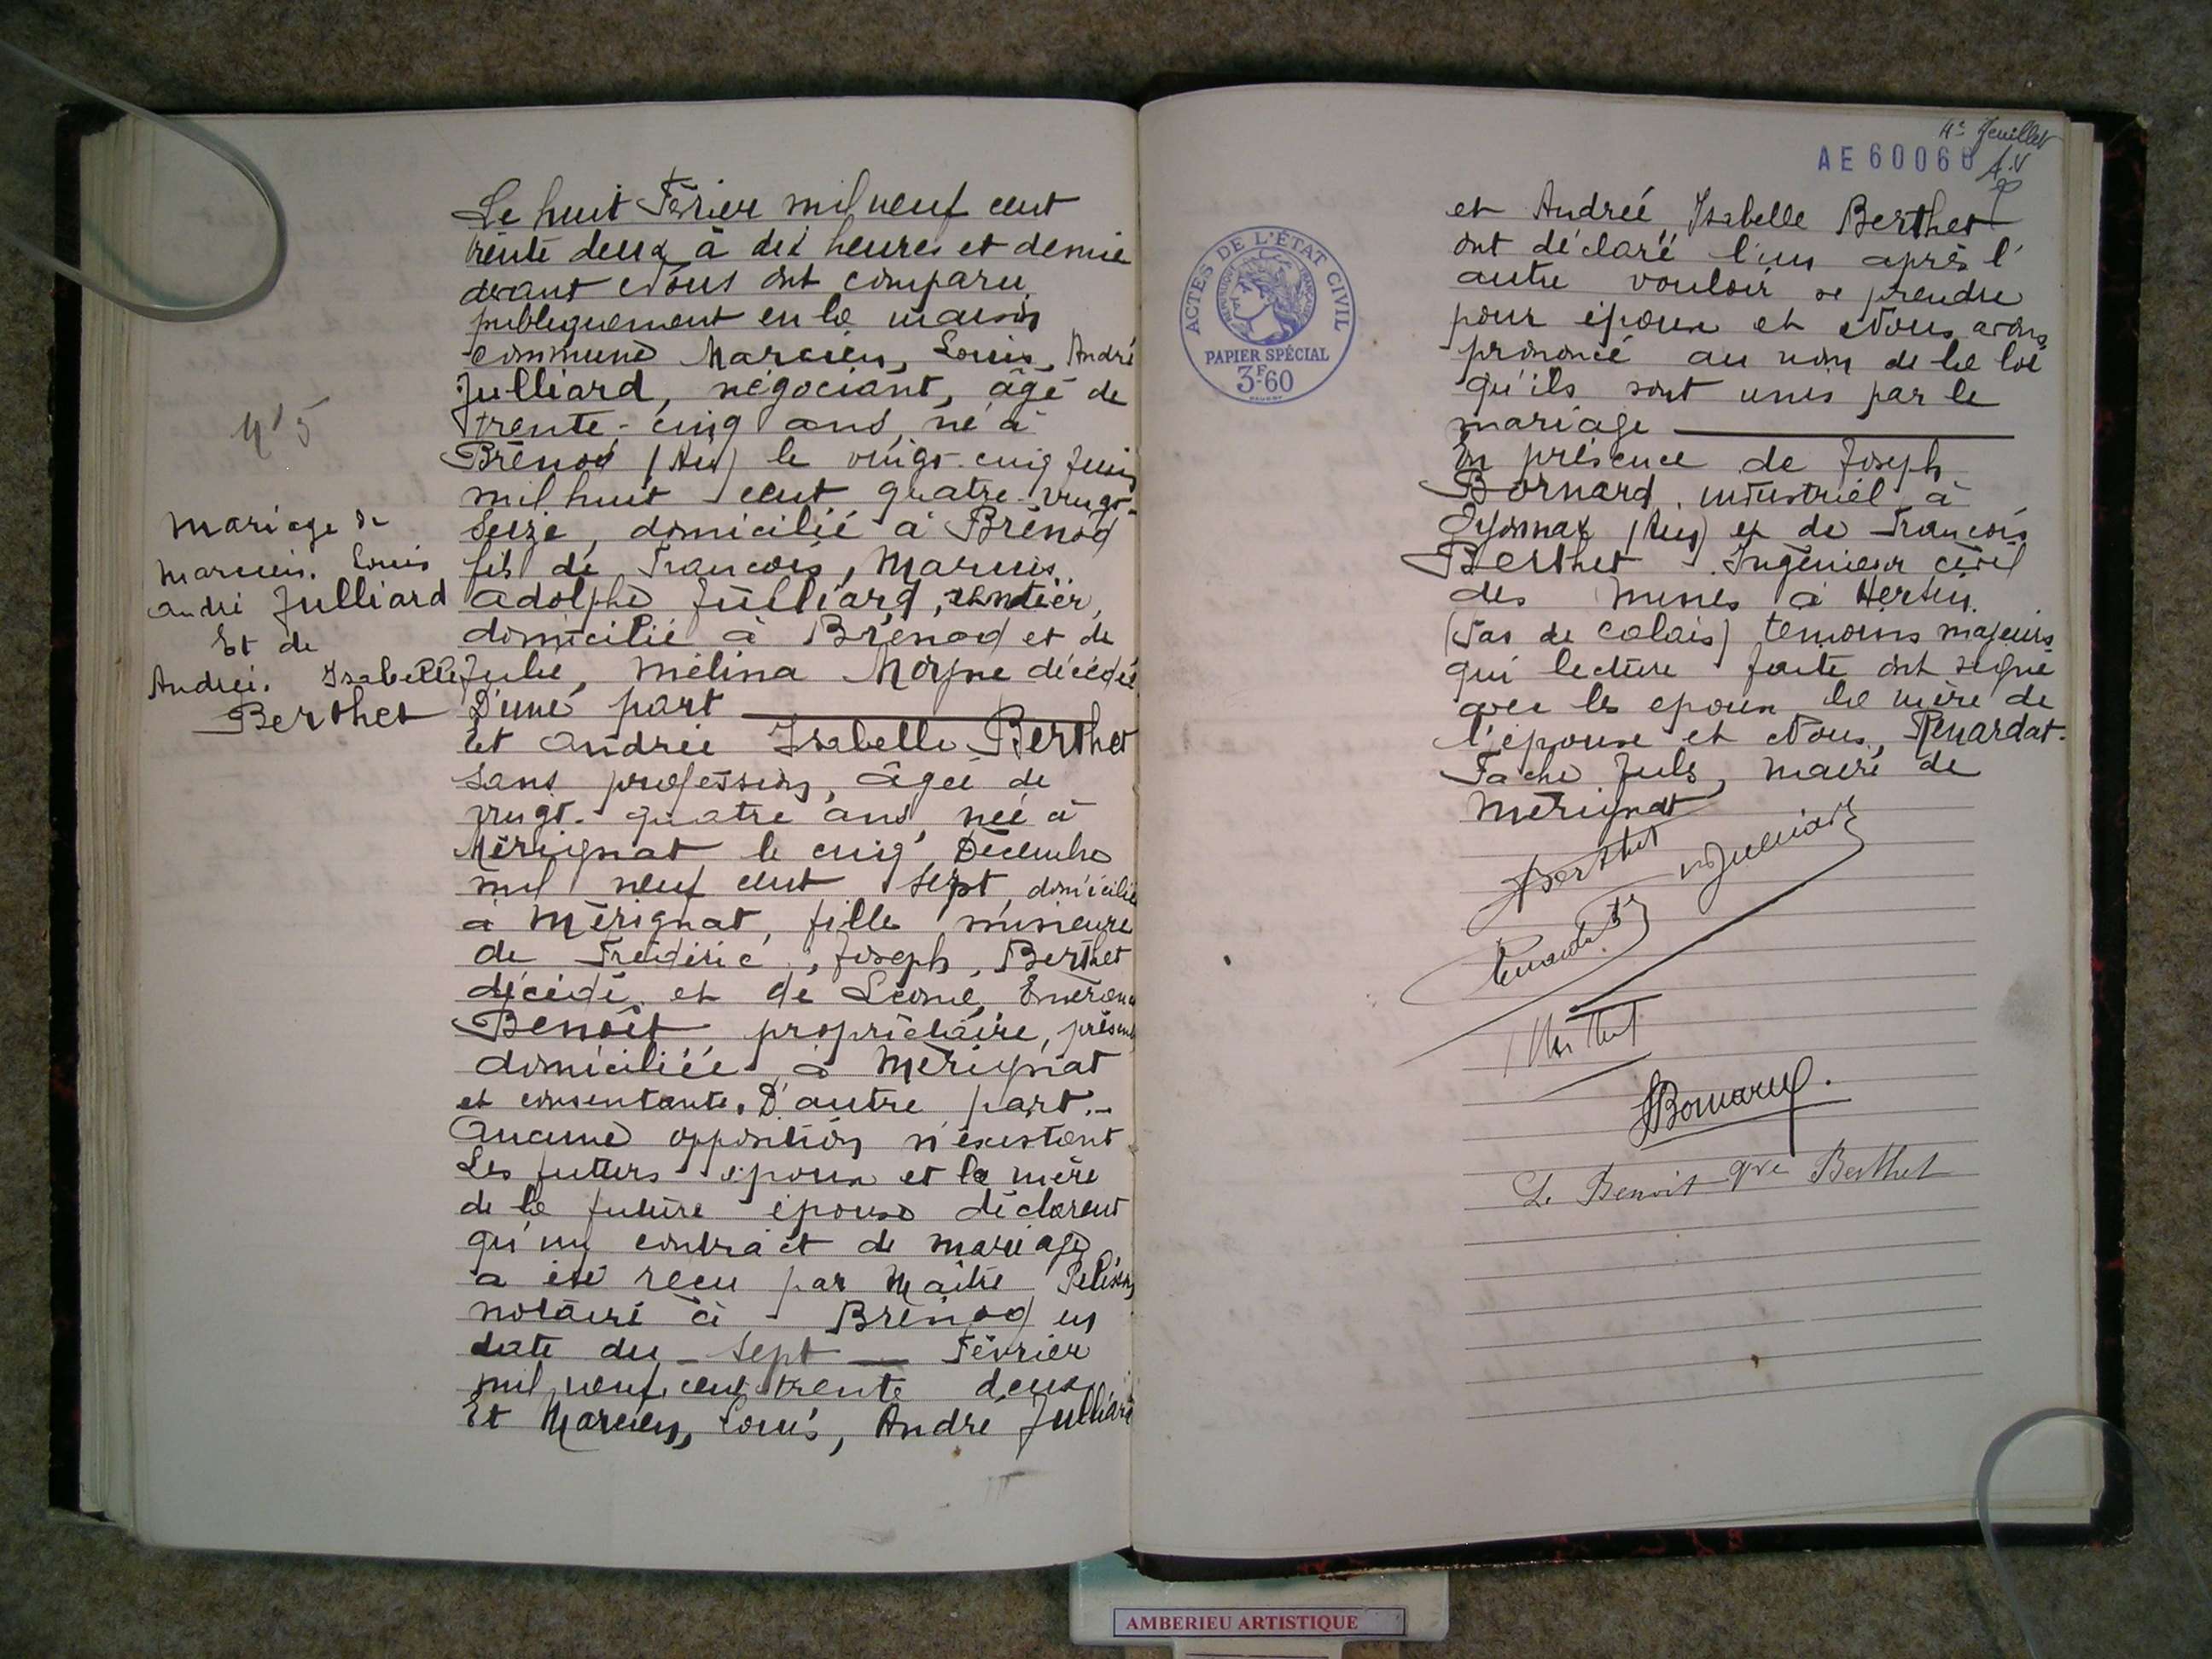 Le huit Février mil neuf cent
trente deux à dix heures et demie
devant Nous ont comparu
publiquement en la maison
commune Marcien, Louis, André
Julliard, négociant, âgé de
trente-cinq ans, né à
Brénod (Ain) le vingt-cinq Juin
mil huit cent quatre-vingt-
seize, domicilié à Brénod
fils de François, Marius,
Adolphe Julliard, rentier,
domicilié à Brénod et de
Julie, Mélina décédée
D'une part
Et Andrée Isabelle Berthet
sans profession, âgée de
vingt-quatre ans, née à
Mérignat le cinq Décembre
mil neuf cent sept, domiciliée
à Mérignat, fille mineure
de Frédéric, Joseph, Berthet
décédé et de Léonie,
Benoît propriétaire, présente
domiciliée à Mérignat
et consentante. D'autre part.-
Aucune opposition n'existant
Les futurs époux et la mère
de la future épouse déclarent
qu'un contract de mariage
a été reçu par Maître
notaire à Brénod en
date du sept Février
mil neuf cent trente deux
Et Marcien, Louis, André Julliard
N° 5
Mariage de
Marcien. Louis
André Julliard
Et de
Andrée. Isabelle
Berthet
4e feuillet
AE 60060
ACTES DE L'ÉTAT CIVIL
PAPIER SPÉCIAL
3F60
et Andrée, Isabelle Berthet
ont déclaré l'un après l'
autre vouloir se prendre
pour époux et Nous avons
prononcé au nom de la loi
qu'ils sont unis par le
mariage
En présence de Joseph
Bornard, industriel à
Oyonnax (Ain) et de François
Berthet. Ingénieur civil
des Mines à Hersin
(Pas de Calais) témoins majeurs
qui lecture faite ont signé
avec les époux la mère de
l'épouse et Nous, Renardat-
Fache Jules, maire de
Mérignat
Berthet
Julliard
JBornard
L. Benoit Vve Berthet
AMBERIEU ARTISTIQUE